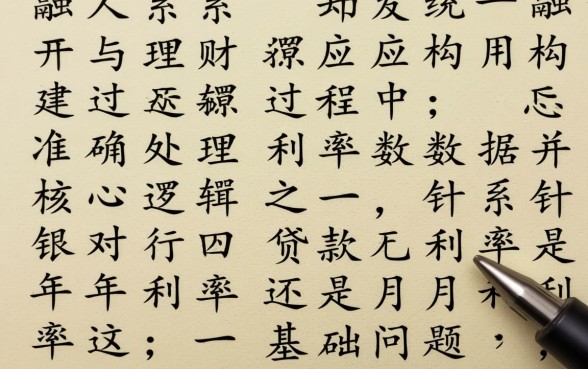 融人系系 却发统一融
开与理财 应应构用构
建过 过程中；
准确处理 利率数数据并
核心逻辑 之一，针系针
银对行四 贷款无利率是
年年利率 还是月月利
率这；一 基础问题，